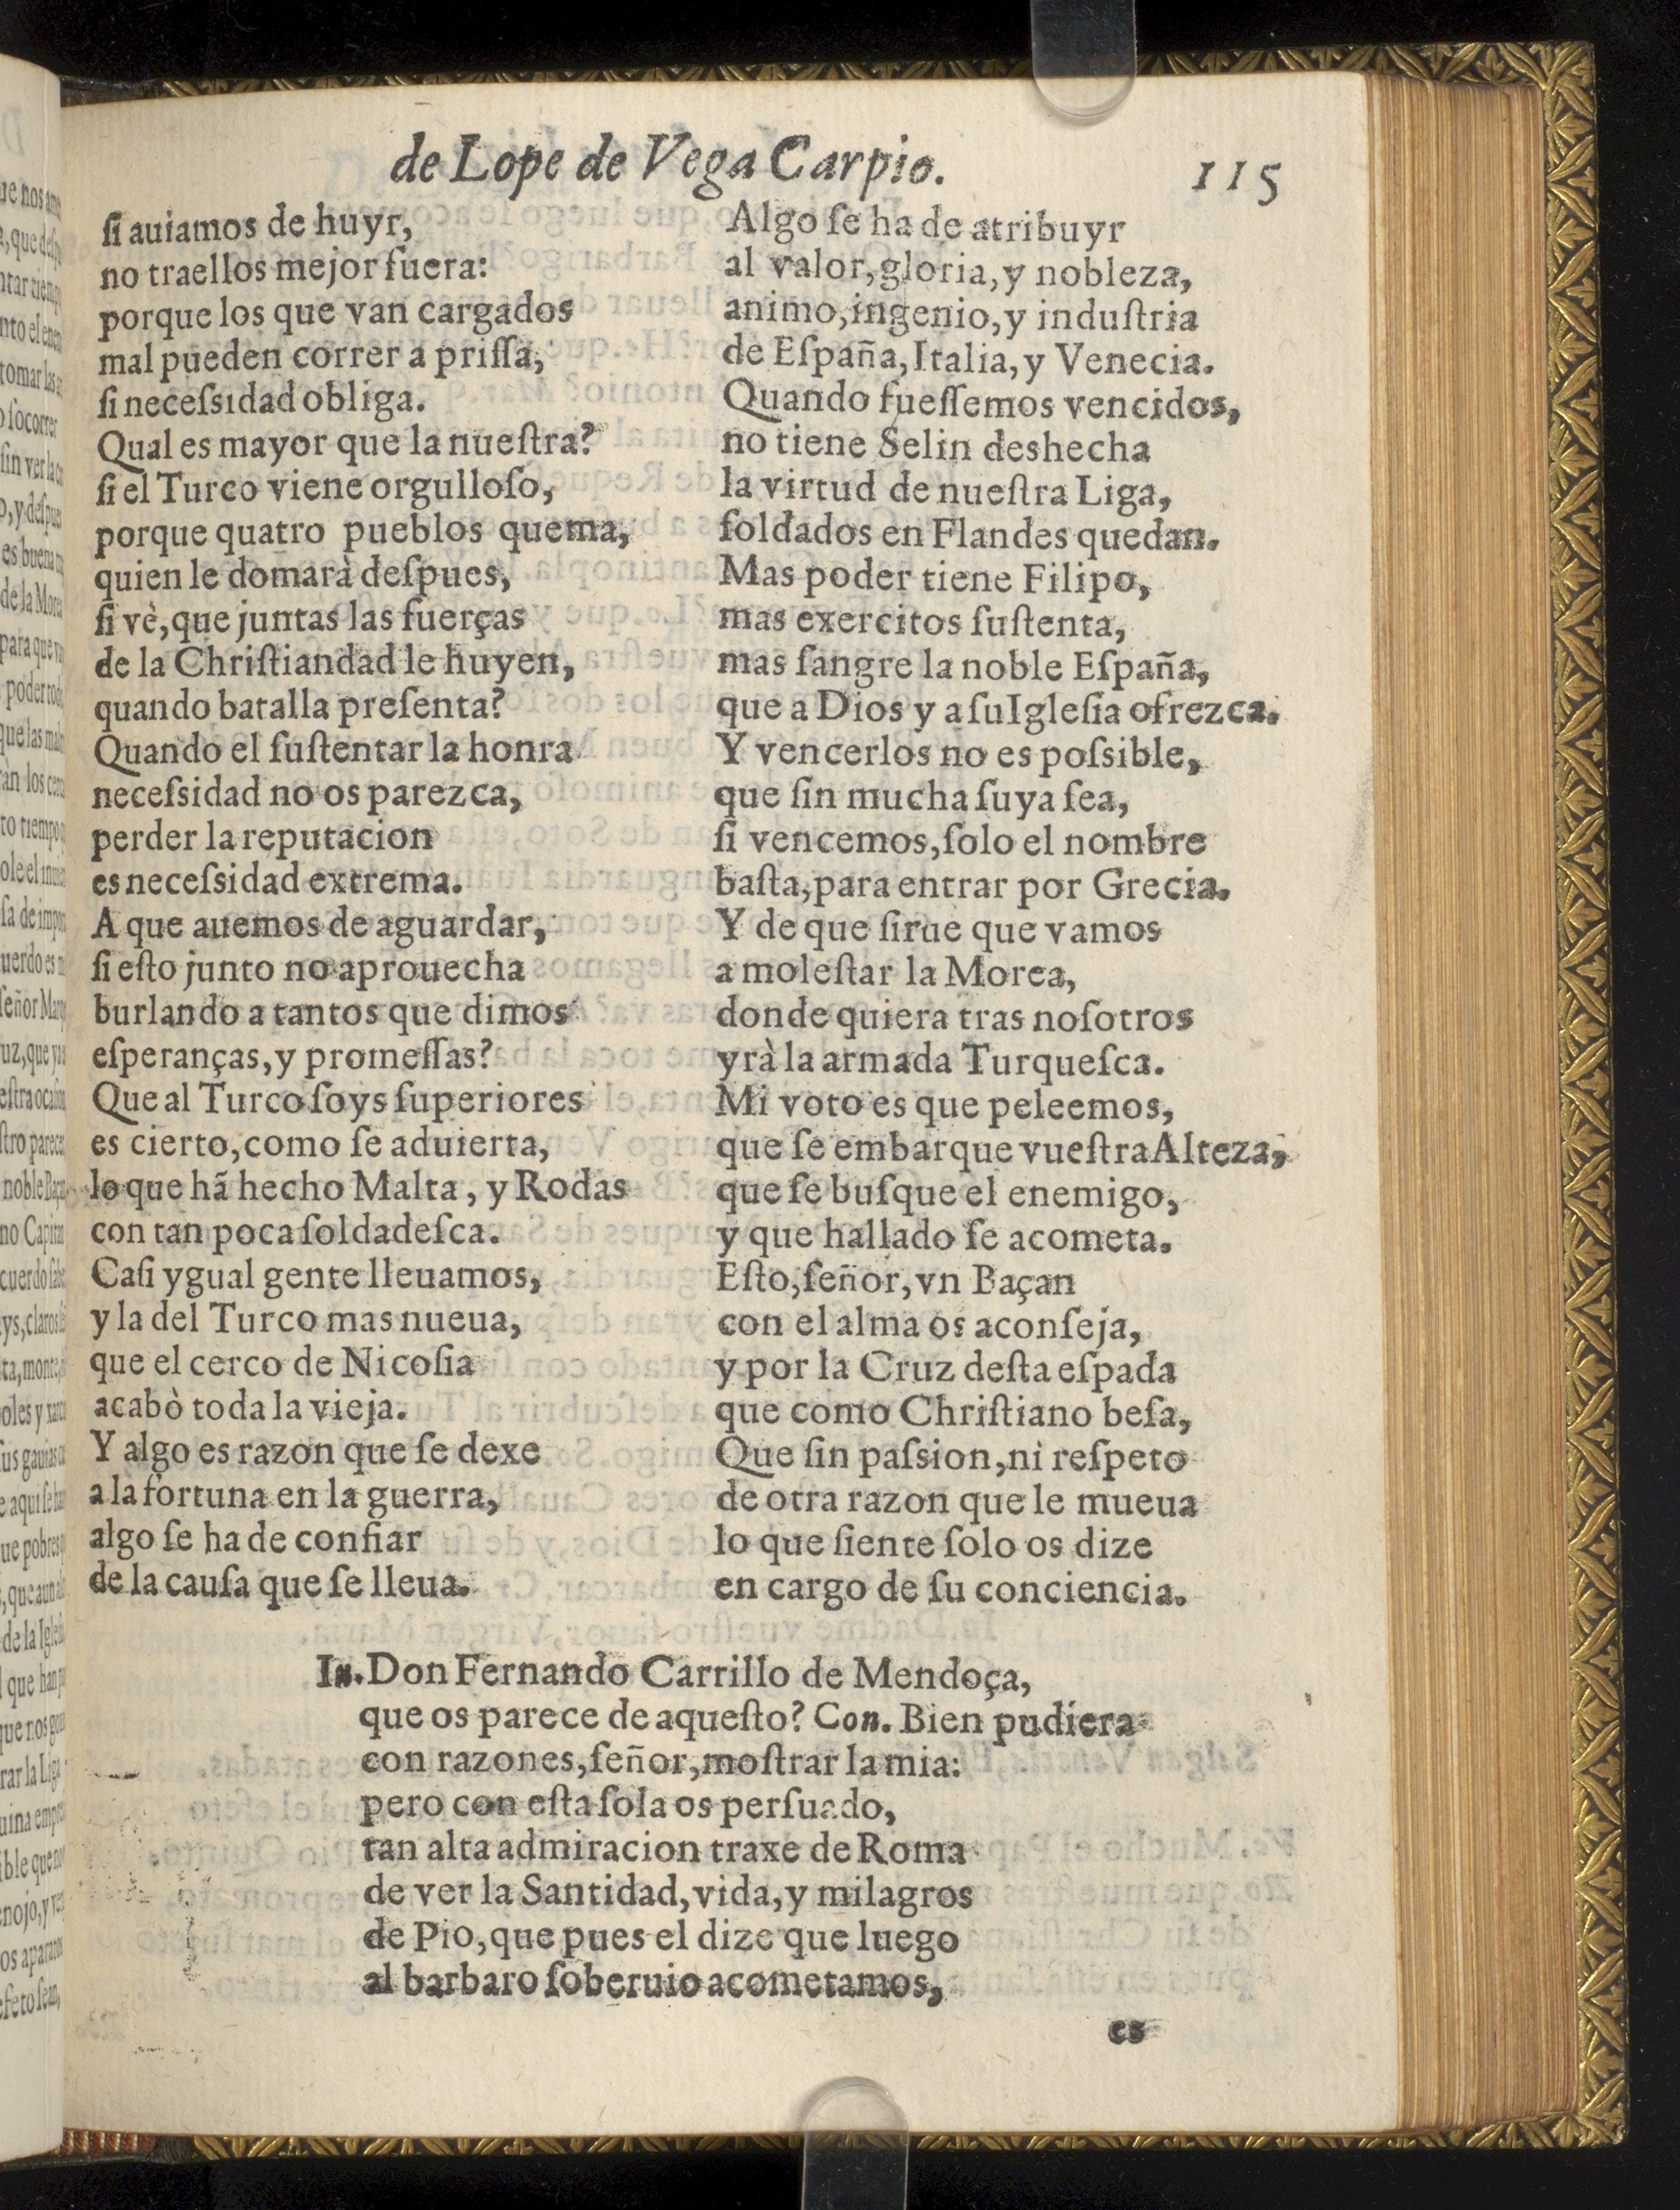 de Lope de Vega Carpio. 115
ſi auiamos de huyr,
no traellos mejor fuera:
porque los que van cargados
mal pueden correr a priſſa,
ſi neceſsidad obliga.
Qual es mayor que la nueſtra?
ſi el Turco viene orgulloſo,
porque quatro pueblos quema,
quien le domarà deſpues,
ſi vè, que juntas las fuerças
de la Chriſtiandad le huyen,
quando batalla preſenta?
Quando el ſuſtentar la honra
neceſsidad no os parezca,
perder la reputacion
es neceſsidad extrema.
A que auemos de aguardar,
ſi eſto junto no aprouecha
burlando a tantos que dimos
eſperanças, y promeſſas?
Que al Turco ſoys ſuperiores
es cierto, como ſe aduierta,
lo que hã hecho Malta, y Rodas
con tan poca ſoldadeſca.
Caſi ygual gente lleuamos,
y la del Turco mas nueua,
que el cerco de Nicoſia
acabò toda la vieja.
Y algo es razon que ſe dexe
a la fortuna en la guerra,
algo ſe ha de confiar
de la cauſa que ſe lleua.
Algo ſe ha de atribuyr
al valor, gloria, y nobleza,
animo, ingenio, y induſtria
de Eſpaña, Italia, y Venecia.
Quando fueſſemos vencidos,
no tiene Selin deshecha
la virtud de nueſtra Liga,
ſoldados en Flandes quedan.
Mas poder tiene Filipo,
mas exercitos ſuſtenta,
mas ſangre la noble Eſpaña,
que a Dios y a ſu Igleſia ofrezca.
Y vencerlos no es poſsible,
que ſin mucha ſuya ſea,
ſi vencemos, ſolo el nombre
baſta, para entrar por Grecia.
Y de que ſirue que vamos
a moleſtar la Morea,
donde quiera tras noſotros
yrà la armada Turqueſca.
Mi voto es que peleemos,
que ſe embarque vueſtra Alteza,
que ſe buſque el enemigo,
y que hallado ſe acometa.
Eſto, ſeñor, vn Baçan
con el alma os aconſeja,
y por la Cruz deſta eſpada
que como Chriſtiano beſa,
Que ſin paſsion, ni reſpeto
de otra razon que le mueua
lo que ſiente ſolo os dize
en cargo de ſu conciencia.
Iu. Don Fernando Carrillo de Mendoça,
que os parece de aqueſto? Con. Bien pudiera
con razones, ſeñor, moſtrar la mia:
pero con eſta ſola os perſuado,
tan alta admiracion traxe de Roma
de ver la Santidad, vida, y milagros
de Pio, que pues el dize que luego
al barbaro ſoberuio acometamos,
es